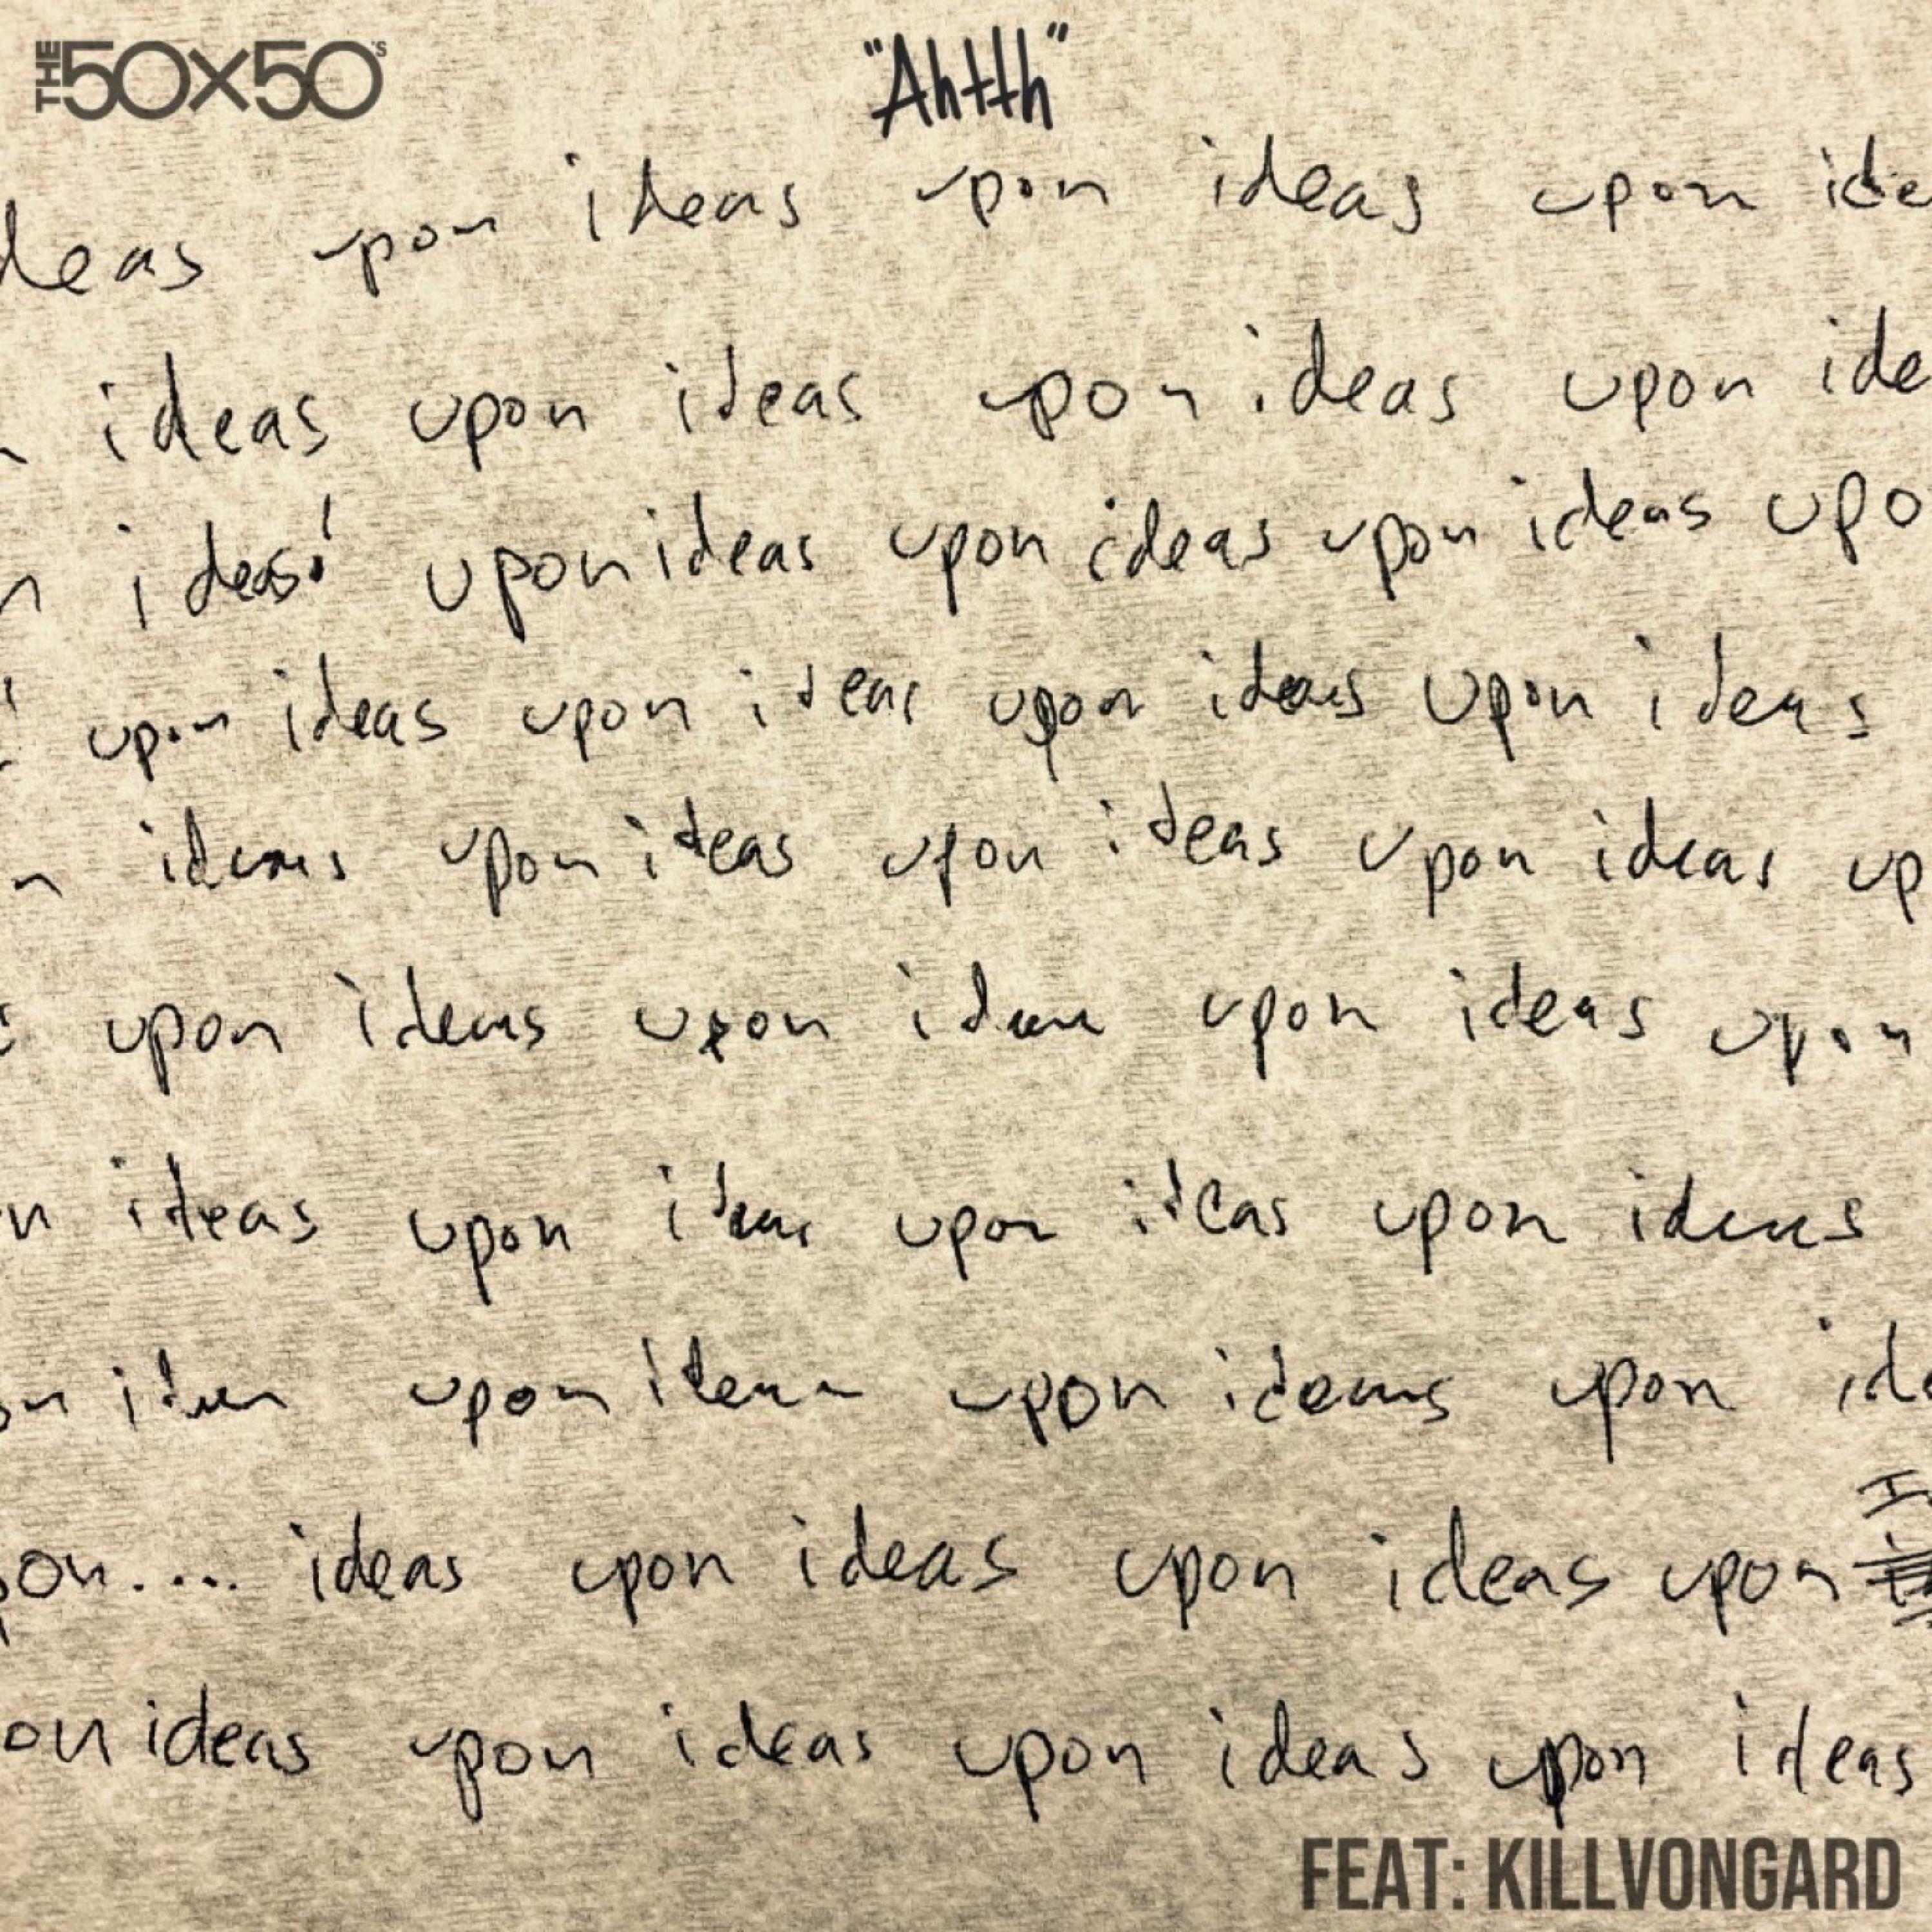 THE 50X50'S
"Ahtth"
deas upon ideas upon ideas upon ide
n ideas upon ideas upon ideas upon ide
n ideas! upon ideas upon ideas upon ideas upo
upon ideas upon ideas upon ideas upon ideas
n ideas upon ideas upon ideas upon ideas up
upon ideas upon ideas upon ideas upon
n ideas upon ideas upon ideas upon ideas
on ideas upon ideas upon ideas upon ide
pon.... ideas upon ideas upon ideas upon I
on ideas upon ideas upon ideas upon ideas
FEAT: KILLVONGARD